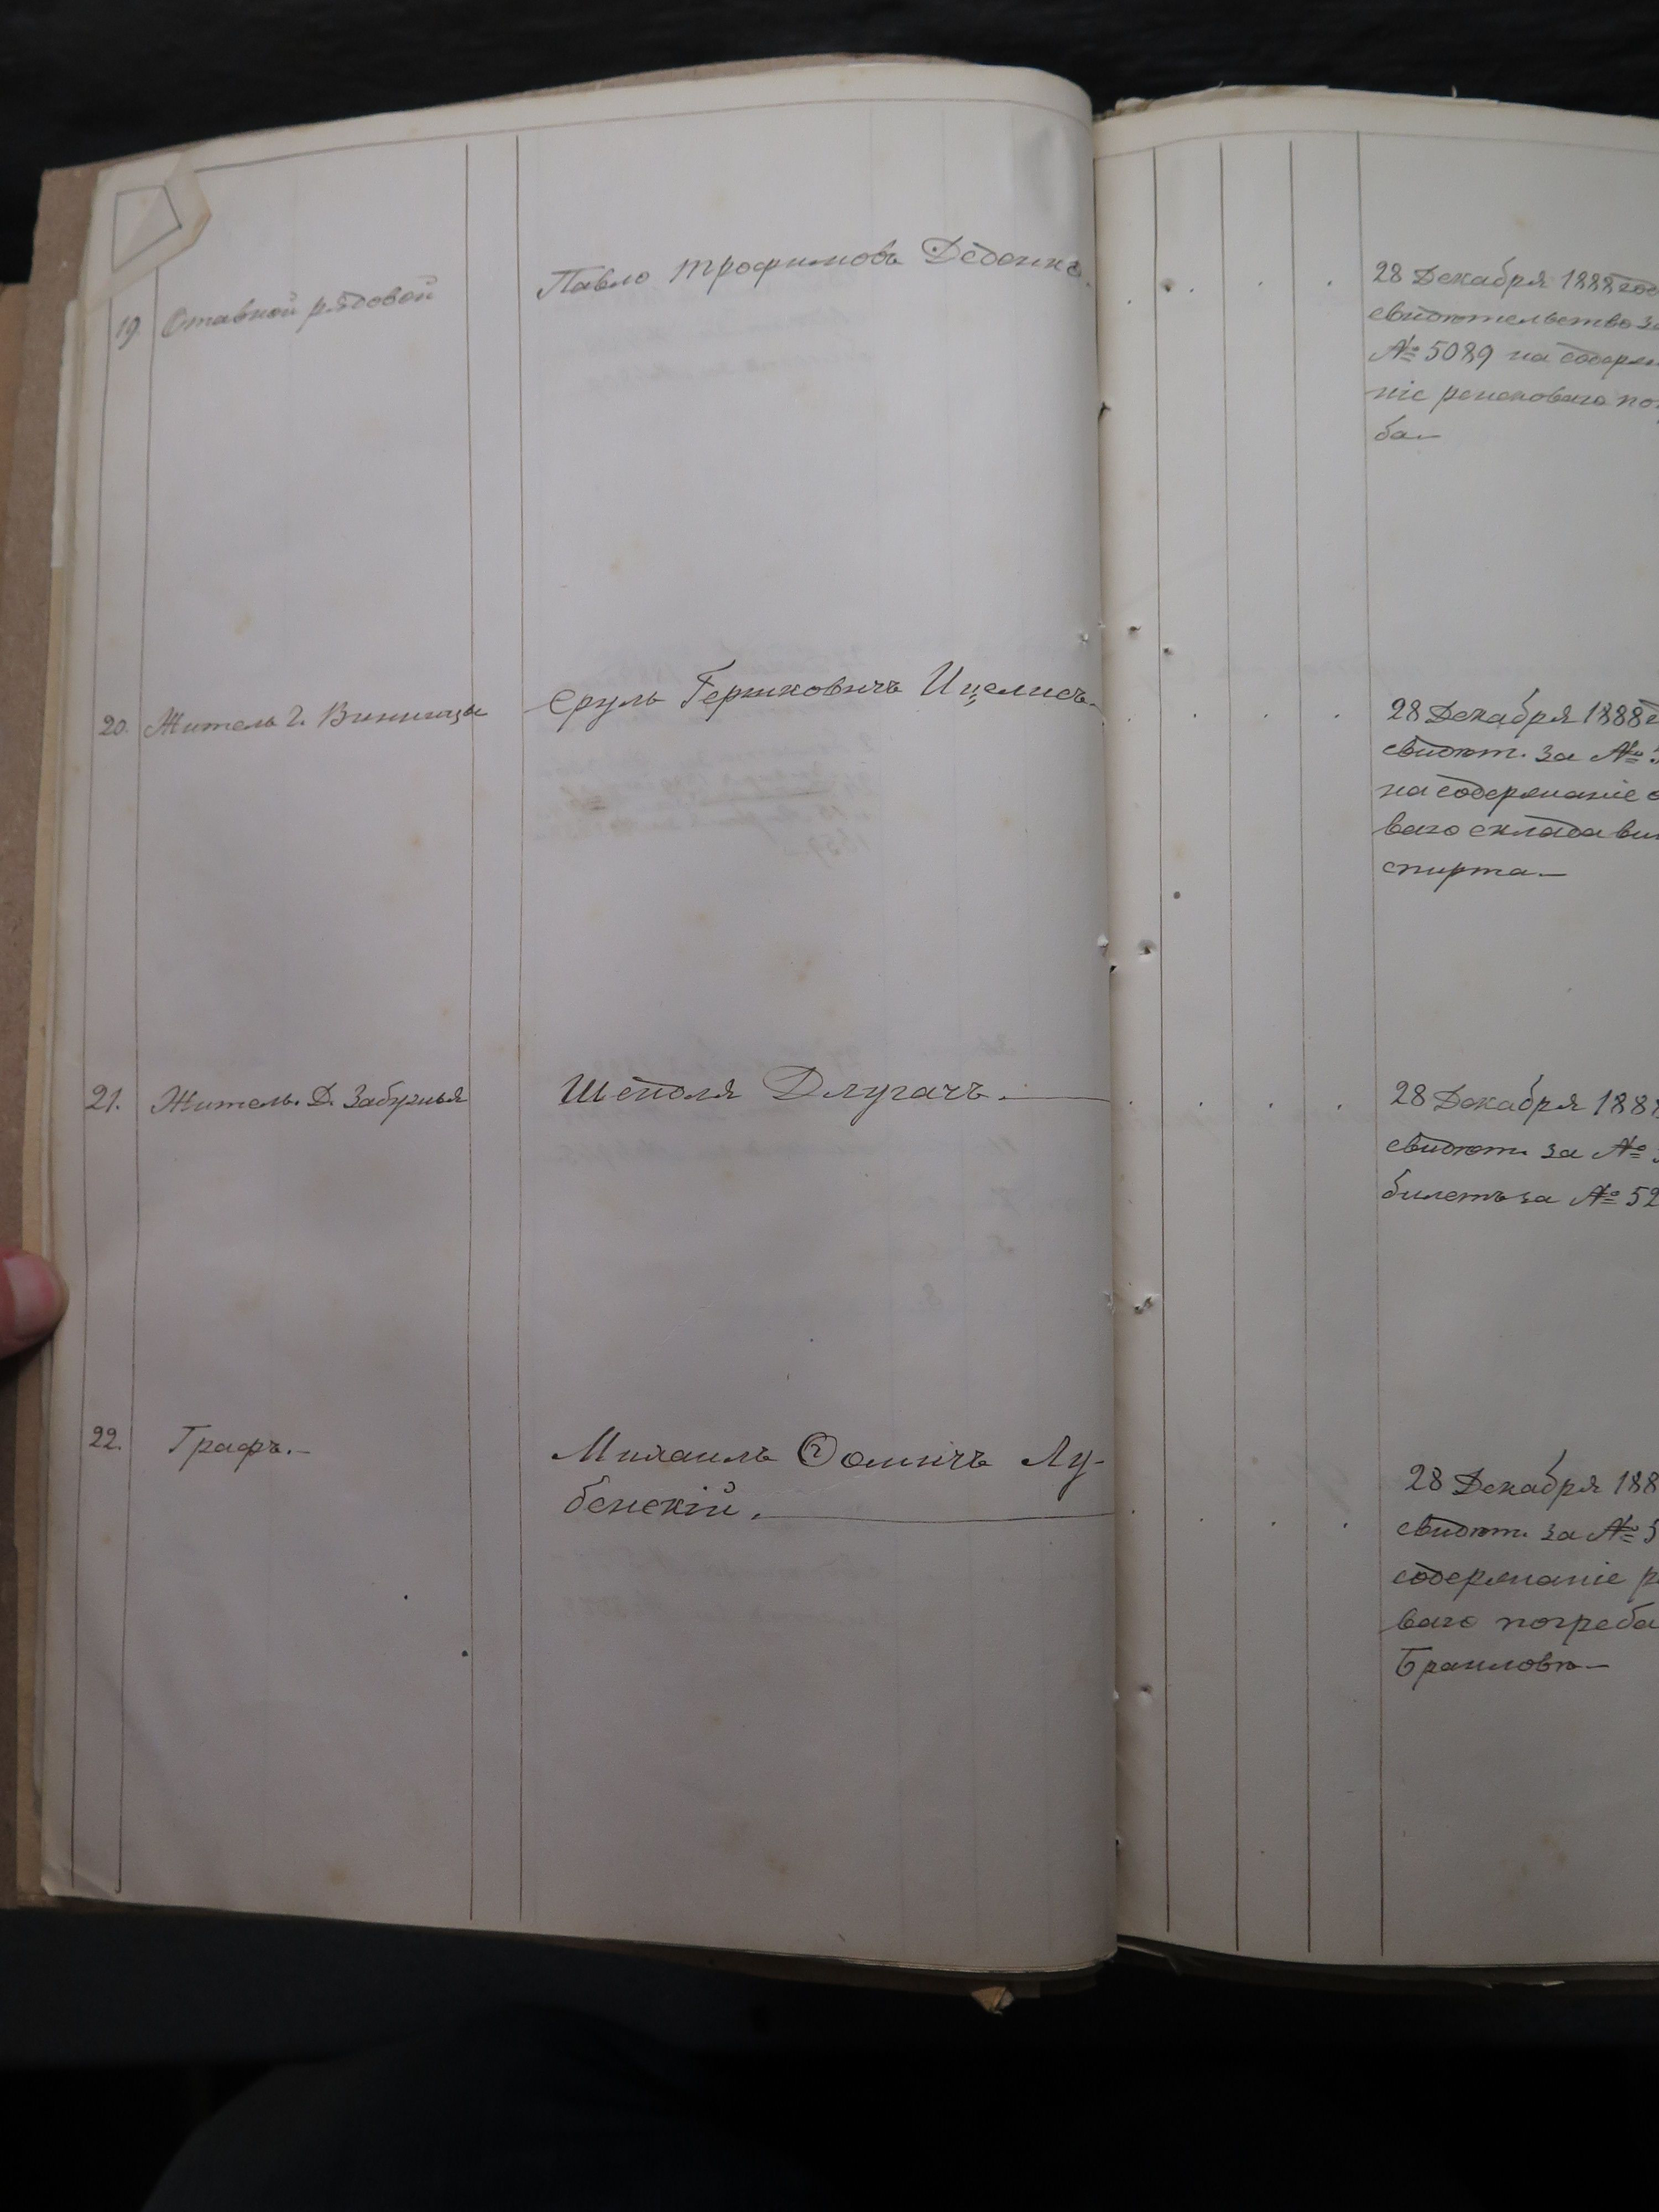 19. Отавной рядовой
Павло Трофимовъ
28 Декабря 1888 год
свидѣтельство за
№ 5089 на содержа
ніе ренсковаго по
ба.—
20. Житель г. Винницы
Сруль Гершковичъ Ицелисъ
28 Декабря 1888 г
свидѣт. за №
на содержаніе о
ваго склада ви
спирта.—
21. Житель. Д. Забужья
Шепсля Длугачъ.—
28 Декабря 1888
свидѣт. за №
билетъ за № 52
22. Графъ.—
Михаилъ Ѳомичъ Лу-
бенскій.
28 Декабря 188
свидѣт. за № 5
содержаніе ре
ваго погреба
Браиловѣ—